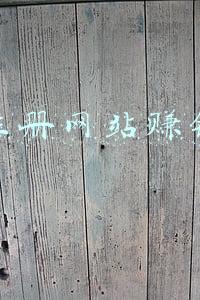 册网站赚